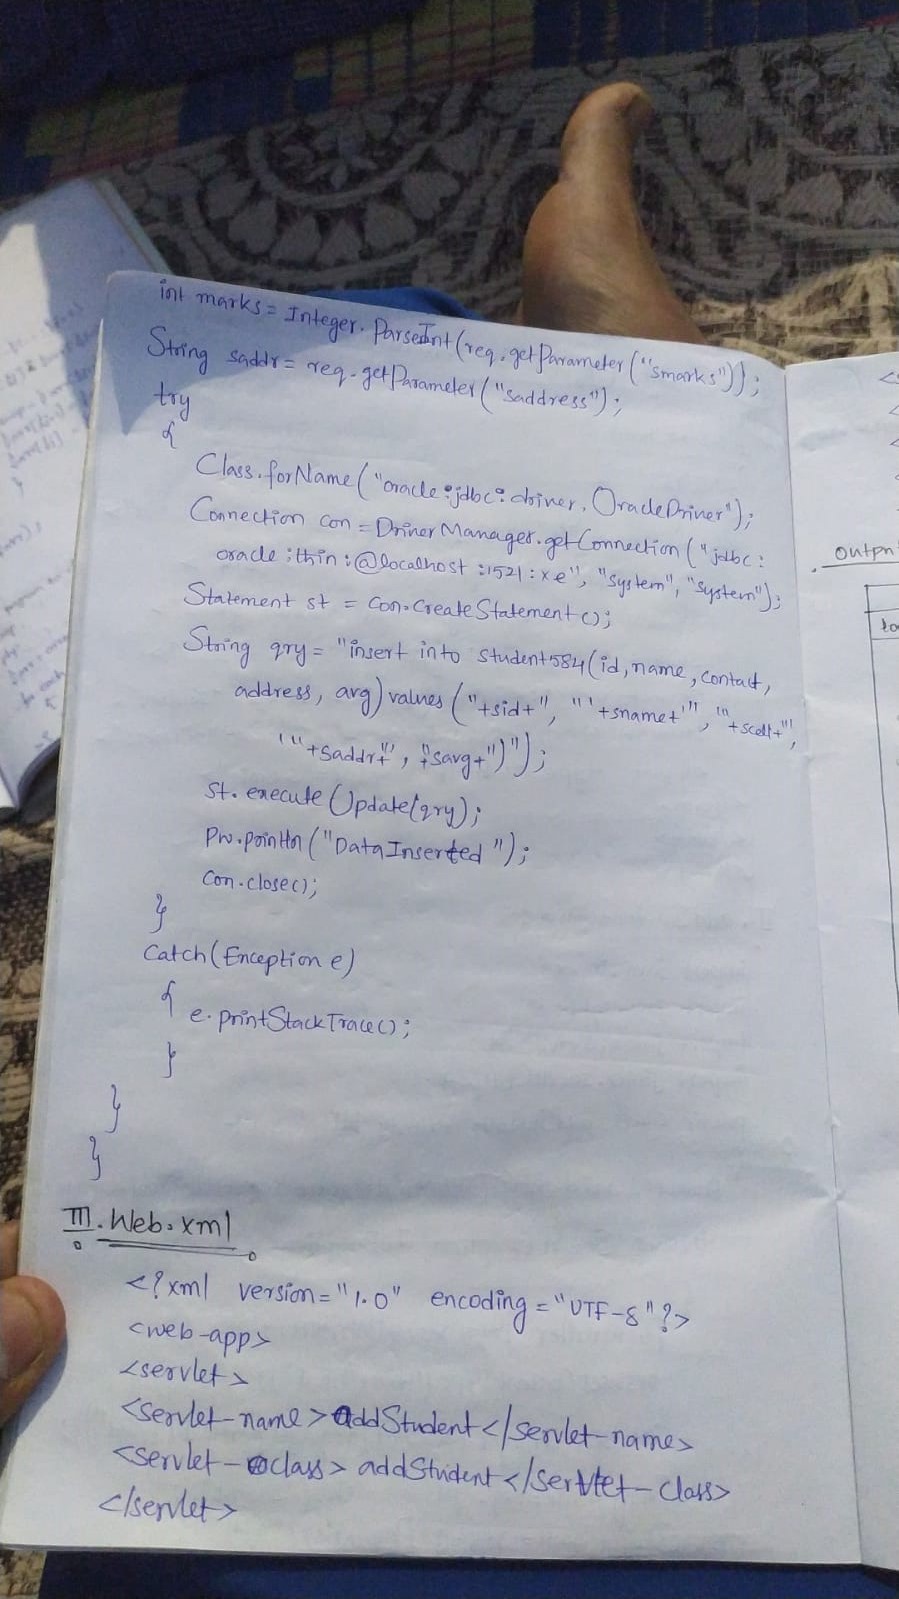 int marks = Integer. ParseInt(req.getParameter("smarks"));
String saddr = req.getParameter("saddress");
try
{
Class.forName("oracle:jdbc:driver. OracleDriver");
Connection con = DriverManager.getConnection("jdbc:
oracle:thin:@localhost:1521:xe", "system", "system");
Statement st = con.createStatement();
String qry = "insert into student584(id, name, contact,
address, avg) values ("+sid+", "'+sname+'", '"+scell+"',
'"+saddr+"', "+savg+")");
st.executeUpdate(qry);
Pw.println("Data Inserted");
con.close();
}
catch(Exception e)
{
e.printStackTrace();
}
}
}
III. Web.xml
<?xml version="1.0" encoding="UTF-8"?>
<web-app>
<servlet>
<servlet-name>addStudent</servlet-name>
<servlet-class>addStudent</servlet-class>
</servlet>